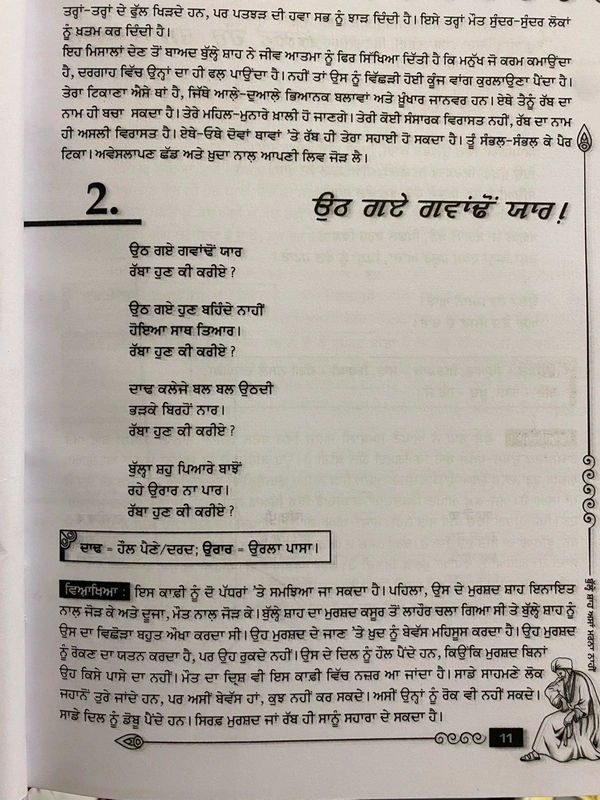 ਤਰ੍ਹਾਂ-ਤਰ੍ਹਾਂ ਦੇ ਫੁੱਲ ਖਿੜਦੇ ਹਨ, ਪਰ ਪਤਝੜ ਦੀ ਹਵਾ ਸਭ ਨੂੰ ਝਾੜ ਦਿੰਦੀ ਹੈ। ਇਸੇ ਤਰ੍ਹਾਂ ਮੌਤ ਸੁੰਦਰ-ਸੁੰਦਰ ਲੋਕਾਂ
ਨੂੰ ਖ਼ਤਮ ਕਰ ਦਿੰਦੀ ਹੈ।
ਇਹ ਮਿਸਾਲਾਂ ਦੇਣ ਤੋਂ ਬਾਅਦ ਬੁੱਲ੍ਹੇ ਸ਼ਾਹ ਨੇ ਜੀਵ ਆਤਮਾ ਨੂੰ ਫਿਰ ਸਿੱਖਿਆ ਦਿੱਤੀ ਹੈ ਕਿ ਮਨੁੱਖ ਜੋ ਕਰਮ ਕਮਾਉਂਦਾ
ਹੈ, ਦਰਗਾਹ ਵਿੱਚ ਉਨ੍ਹਾਂ ਦਾ ਹੀ ਫਲ ਪਾਉਂਦਾ ਹੈ। ਨਹੀਂ ਤਾਂ ਉਸ ਨੂੰ ਵਿੱਛੜੀ ਹੋਈ ਕੂੰਜ ਵਾਂਗ ਕੁਰਲਾਉਣਾ ਪੈਂਦਾ ਹੈ।
ਤੇਰਾ ਟਿਕਾਣਾ ਐਸੇ ਥਾਂ ਹੈ, ਜਿੱਥੇ ਆਲ਼ੇ-ਦੁਆਲ਼ੇ ਭਿਆਨਕ ਬਲਾਵਾਂ ਅਤੇ ਖ਼ੂੰਖ਼ਾਰ ਜਾਨਵਰ ਹਨ। ਏਥੇ ਤੈਨੂੰ ਰੱਬ ਦਾ
ਨਾਮ ਹੀ ਬਚਾ ਸਕਦਾ ਹੈ। ਤੇਰੇ ਮਹਿਲ-ਮੁਨਾਰੇ ਖ਼ਾਲੀ ਹੋ ਜਾਣਗੇ। ਤੇਰੀ ਕੋਈ ਸੰਸਾਰਕ ਵਿਰਾਸਤ ਨਹੀਂ, ਰੱਬ ਦਾ ਨਾਮ
ਹੀ ਅਸਲੀ ਵਿਰਾਸਤ ਹੈ। ਏਥੇ-ਓਥੇ ਦੋਵਾਂ ਥਾਵਾਂ ’ਤੇ ਰੱਬ ਹੀ ਤੇਰਾ ਸਹਾਈ ਹੋ ਸਕਦਾ ਹੈ। ਤੂੰ ਸੰਭਲ਼-ਸੰਭਲ਼ ਕੇ ਪੈਰ
ਟਿਕਾ। ਅਵੇਸਲਾਪਣ ਛੱਡ ਅਤੇ ਖ਼ੁਦਾ ਨਾਲ਼ ਆਪਣੀ ਲਿਵ ਜੋੜ ਲੈ।
2. ਉਠ ਗਏ ਗਵਾਂਢੋਂ ਯਾਰ!
ਉਠ ਗਏ ਗਵਾਂਢੋਂ ਯਾਰ
ਰੱਬਾ ਹੁਣ ਕੀ ਕਰੀਏ?
ਉਠ ਗਏ ਹੁਣ ਬਹਿੰਦੇ ਨਾਹੀਂ
ਹੋਇਆ ਸਾਥ ਤਿਆਰ।
ਰੱਬਾ ਹੁਣ ਕੀ ਕਰੀਏ?
ਦਾਢ ਕਲੇਜੇ ਬਲ ਬਲ ਉਠਦੀ
ਭੜਕੇ ਬਿਰਹੋਂ ਨਾਰ।
ਰੱਬਾ ਹੁਣ ਕੀ ਕਰੀਏ?
ਬੁੱਲ੍ਹਾ ਸ਼ਹੁ ਪਿਆਰੇ ਬਾਝੋਂ
ਰਹੇ ਉਰਾਰ ਨਾ ਪਾਰ।
ਰੱਬਾ ਹੁਣ ਕੀ ਕਰੀਏ?
ਦਾਢ = ਹੌਲ ਪੈਣੇ/ਦਰਦ; ਉਰਾਰ = ਉਰਲਾ ਪਾਸਾ।
ਵਿਆਖਿਆ : ਇਸ ਕਾਫ਼ੀ ਨੂੰ ਦੋ ਪੱਧਰਾਂ ’ਤੇ ਸਮਝਿਆ ਜਾ ਸਕਦਾ ਹੈ। ਪਹਿਲਾ, ਉਸ ਦੇ ਮੁਰਸ਼ਦ ਸ਼ਾਹ ਇਨਾਇਤ
ਨਾਲ਼ ਜੋੜ ਕੇ ਅਤੇ ਦੂਜਾ, ਮੌਤ ਨਾਲ਼ ਜੋੜ ਕੇ। ਬੁੱਲ੍ਹੇ ਸ਼ਾਹ ਦਾ ਮੁਰਸ਼ਦ ਕਸੂਰ ਤੋਂ ਲਾਹੌਰ ਚਲਾ ਗਿਆ ਸੀ ਤੇ ਬੁੱਲ੍ਹੇ ਸ਼ਾਹ ਨੂੰ
ਉਸ ਦਾ ਵਿਛੋੜਾ ਬਹੁਤ ਔਖਾ ਕਰਦਾ ਸੀ। ਉਹ ਮੁਰਸ਼ਦ ਦੇ ਜਾਣ ’ਤੇ ਖ਼ੁਦ ਨੂੰ ਬੇਵੱਸ ਮਹਿਸੂਸ ਕਰਦਾ ਹੈ। ਉਹ ਮੁਰਸ਼ਦ
ਨੂੰ ਰੋਕਣ ਦਾ ਯਤਨ ਕਰਦਾ ਹੈ, ਪਰ ਉਹ ਰੁਕਦੇ ਨਹੀਂ। ਉਸ ਦੇ ਦਿਲ ਨੂੰ ਹੌਲ ਪੈਂਦੇ ਹਨ, ਕਿਉਂਕਿ ਮੁਰਸ਼ਦ ਬਿਨਾਂ
ਉਹ ਕਿਸੇ ਪਾਸੇ ਦਾ ਨਹੀਂ। ਮੌਤ ਦਾ ਦ੍ਰਿਸ਼ ਵੀ ਇਸ ਕਾਫ਼ੀ ਵਿੱਚ ਨਜ਼ਰ ਆ ਜਾਂਦਾ ਹੈ। ਸਾਡੇ ਸਾਹਮਣੇ ਲੋਕ
ਜਹਾਨੋਂ ਤੁਰੇ ਜਾਂਦੇ ਹਨ, ਪਰ ਅਸੀਂ ਬੇਵੱਸ ਹਾਂ, ਕੁਝ ਨਹੀਂ ਕਰ ਸਕਦੇ। ਅਸੀਂ ਉਨ੍ਹਾਂ ਨੂੰ ਰੋਕ ਵੀ ਨਹੀਂ ਸਕਦੇ।
ਸਾਡੇ ਦਿਲ ਨੂੰ ਡੋਬੂ ਪੈਂਦੇ ਹਨ। ਸਿਰਫ਼ ਮੁਰਸ਼ਦ ਜਾਂ ਰੱਬ ਹੀ ਸਾਨੂੰ ਸਹਾਰਾ ਦੇ ਸਕਦਾ ਹੈ।
ਬੁੱਲ੍ਹੇ ਸ਼ਾਹ ਅਸਾਂ ਮਰਨਾ ਨਾਹੀਂ
11